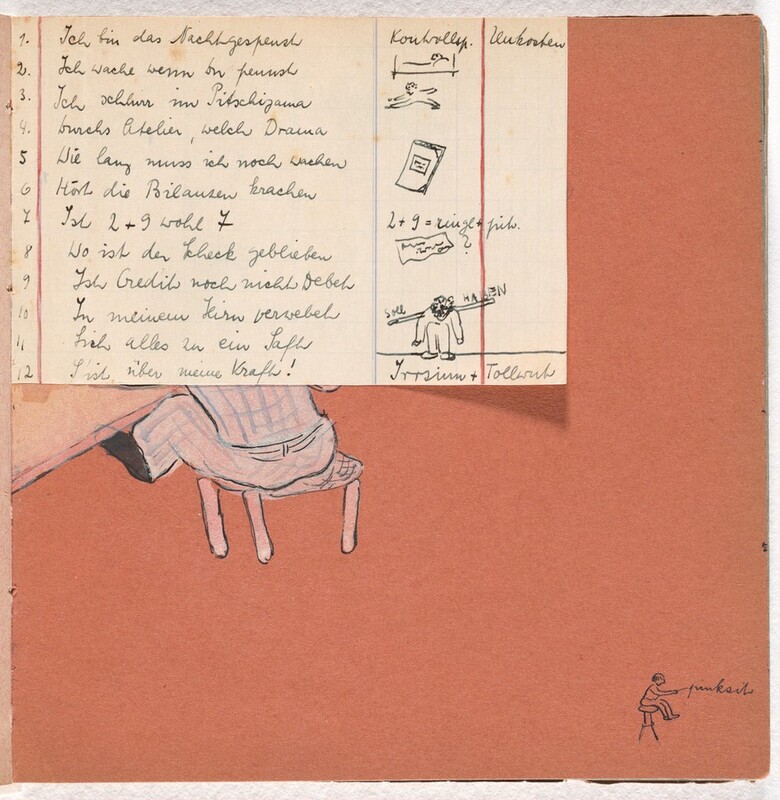 Kontrollsp. Unkosten
1. Ich bin das Nachtgespenst
2. Ich wache wenn du pennst
3. Ich schlurr im Pitschijama
4. durchs Atelier, welch Drama
5 Wie lang muss ich noch wachen
6 Hört die Bilanzen krachen
7 Ist 2+9 wohl 7
2+9 =
8 Wo ist der Scheck geblieben
?
9 Ist Credit noch nicht Debet
10 In meinem Hirn verwebet
Soll HABEN
11 Sich alles zu ein Saft
12 S'ist über meine Kraft!
Irrsinn + Tollwut
pinksit